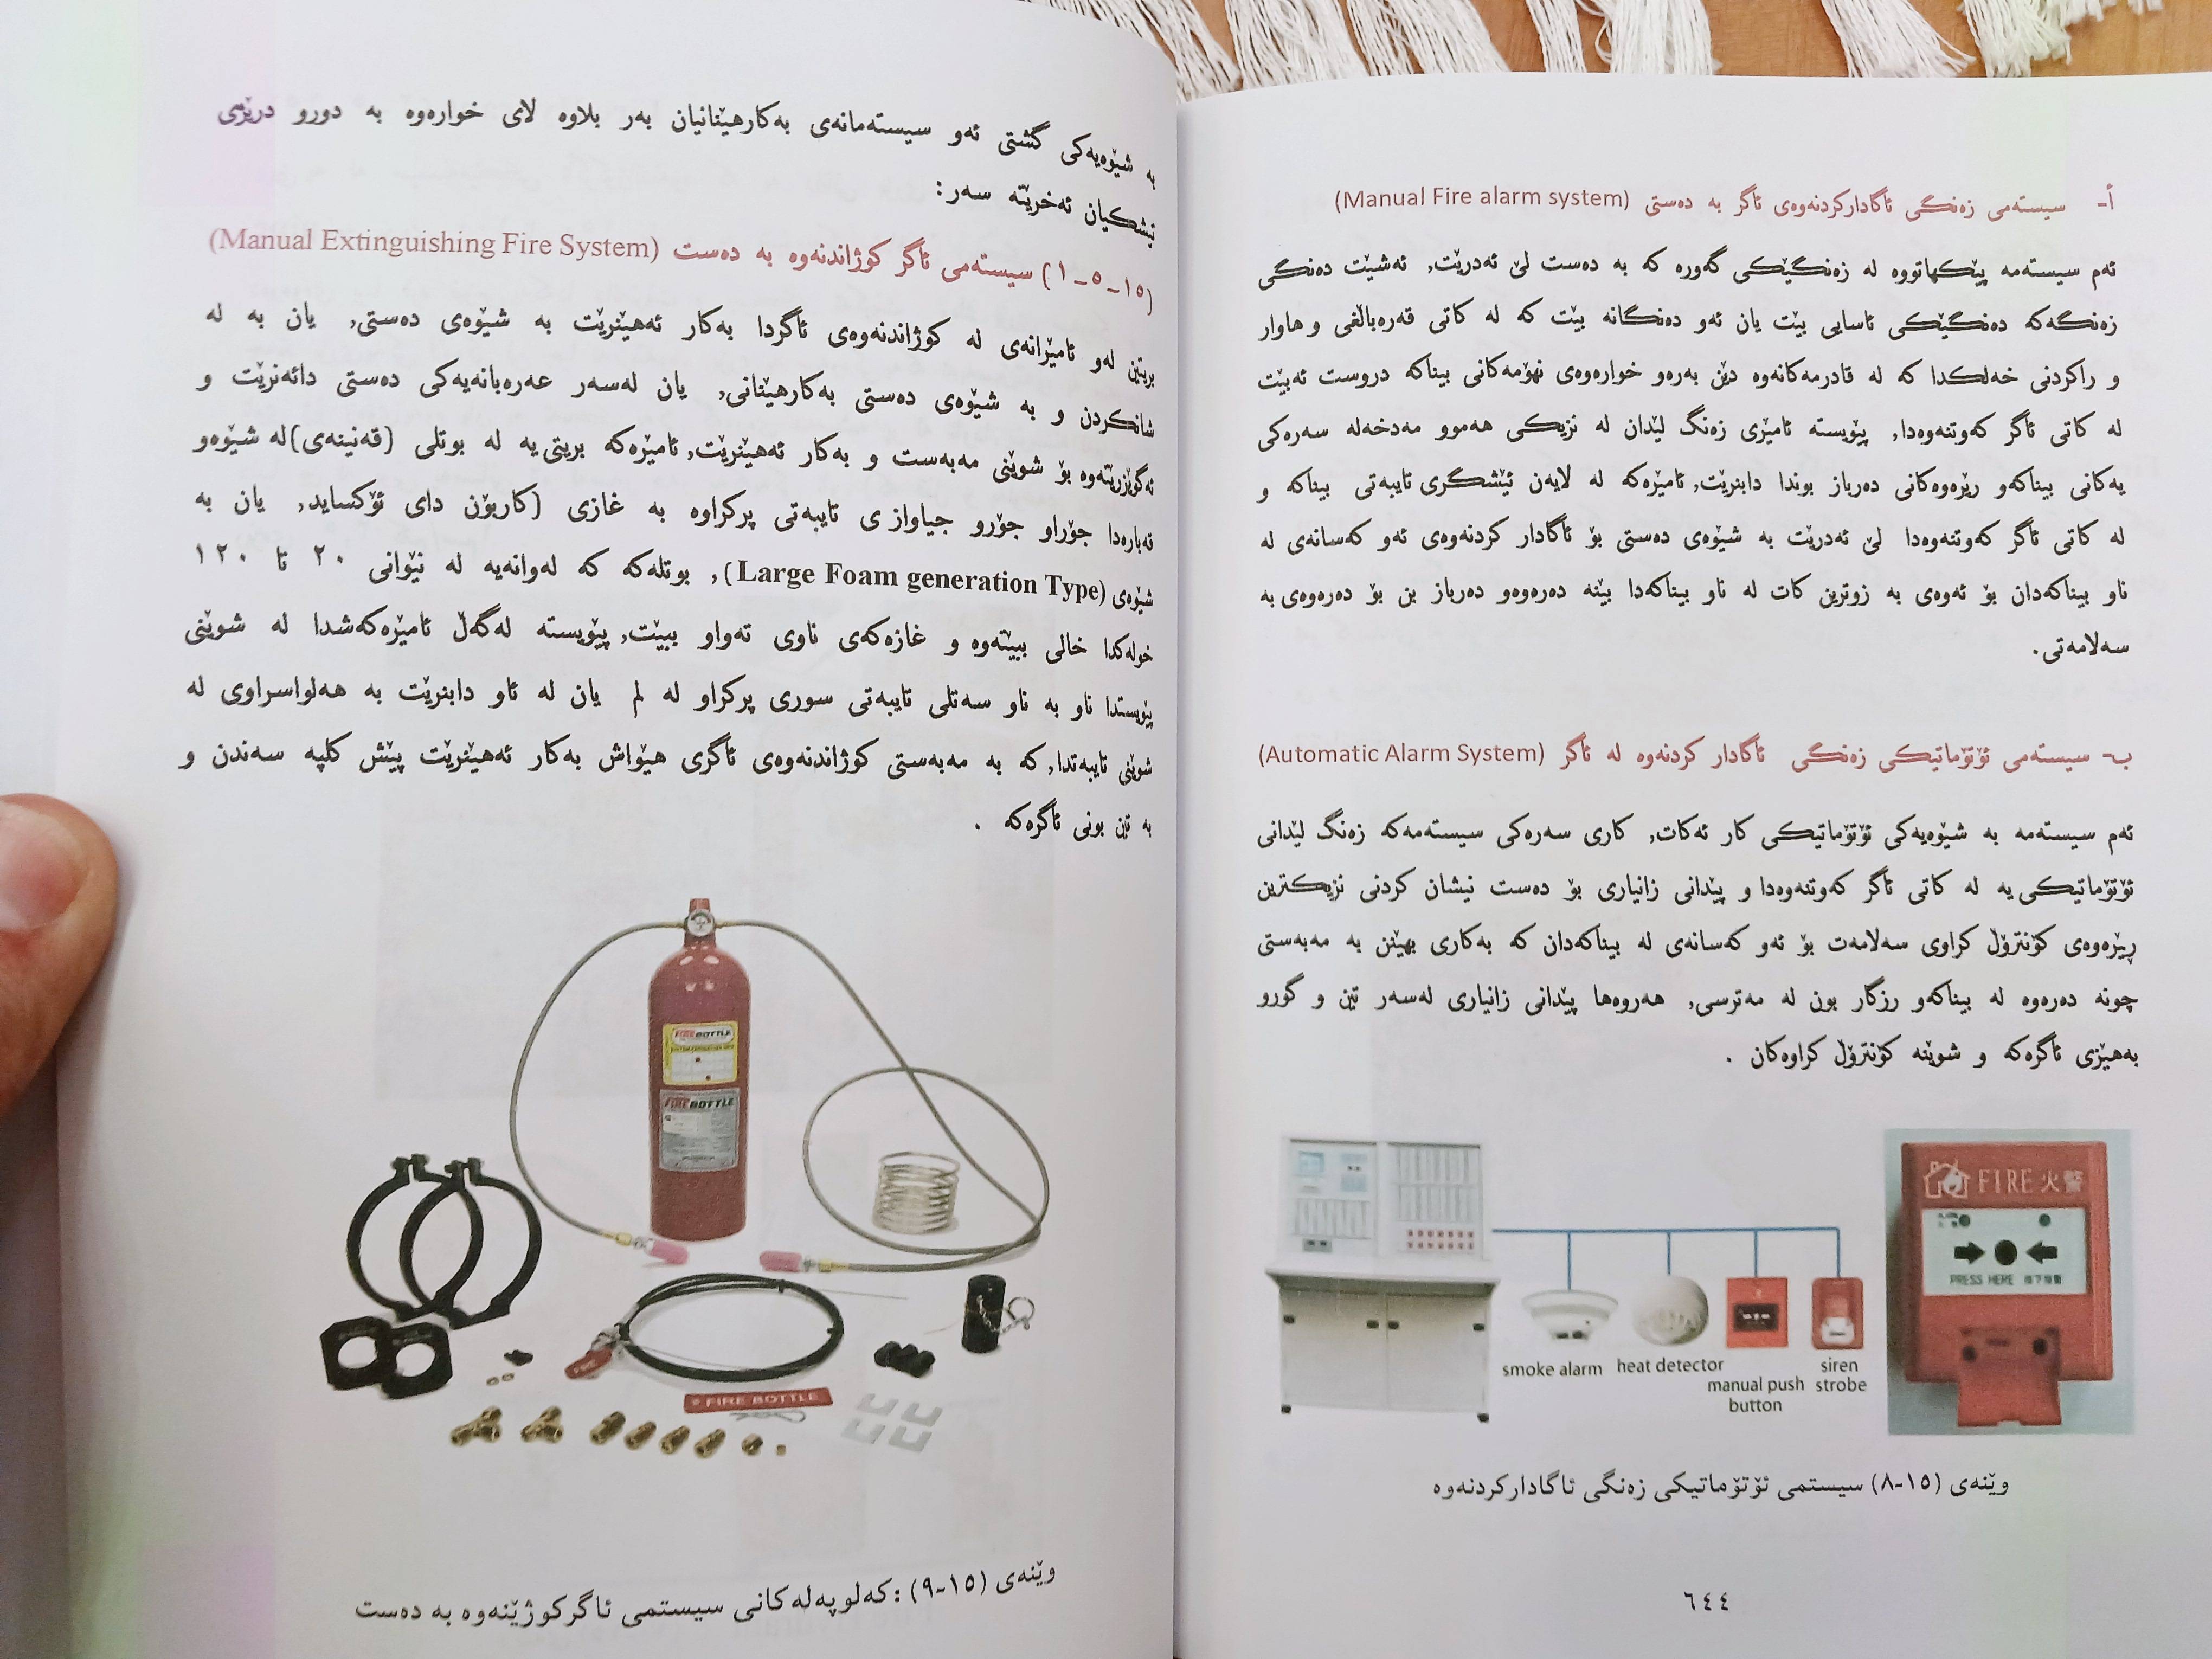 أ- سیستەمی زەنگی ئاگادارکردنەوەی ئاگر بە دەستی (Manual Fire alarm system)
ئەم سیستەمە پێکهاتووە لە زەنگێکی گەورە کە بە دەست لێ ئەدرێت, ئەشێت دەنگی
زەنگەکە دەنگێکی ئاسایی بێت یان ئەو دەنگانە بێت کە لە کاتی قەرەباڵغی و هاوار
و راکردنی خەلکدا کە لە قادرمەکانەوە دێن بەرەو خوارەوەی نهۆمەکانی بیناکە دروست ئەبێت
لە کاتی ئاگر کەوتنەوەدا, پێویستە ئامێری زەنگ لێدان لە نزیکی هەموو مەدخەلە سەرەکی
یەکانی بیناکەو رێرەوەکانی دەرباز بوندا دابنرێت, ئامێرەکە لە لایەن ئێشگری تایبەتی بیناکە و
لە کاتی ئاگر کەوتنەوەدا لێ ئەدرێت بە شێوەی دەستی بۆ ئاگادار کردنەوەی ئەو کەسانەی لە
ناو بیناکەدان بۆ ئەوەی بە زوترین کات لە ناو بیناکەدا بێنە دەرەوەو دەرباز بن بۆ دەرەوەی بە
سەلامەتی.
ب- سیستەمی ئۆتۆماتیکی زەنگی ئاگادار کردنەوە لە ئاگر (Automatic Alarm System)
ئەم سیستەمە بە شێوەیەکی ئۆتۆماتیکی کار ئەکات, کاری سەرەکی سیستەمەکە زەنگ لێدانی
ئۆتۆماتیکی یە لە کاتی ئاگر کەوتنەوەدا و پێدانی زانیاری بۆ دەست نیشان کردنی نزیکترین
ڕێرەوەی کۆنترۆڵ کراوی سەلامەت بۆ ئەو کەسانەی لە بیناکەدان کە بەکاری بهێنن بە مەبەستی
چونە دەرەوە لە بیناکەو رزگار بون لە مەترسی, هەروەها پێدانی زانیاری لەسەر تین و گورو
بەهێزی ئاگرەکە و شوێنە کۆنترۆڵ کراوەکان .
smoke alarm
heat detector
manual push
button
siren
strobe
FIRE 火警
PRESS HERE
وێنەی (١٥-٨) سیستمی ئۆتۆماتیکی زەنگی ئاگادارکردنەوە
٦٤٤
بە شێوەیەکی گشتی ئەو سیستەمانەی بەکارهێنانیان بەر بلاوە لای خوارەوە بە دورو درێژی
تیشکیان ئەخرێتە سەر:
(١٥-٥-١) سیستەمی ئاگر کوژاندنەوە بە دەست (Manual Extinguishing Fire System)
بریتین لەو ئامێرانەی لە کوژاندنەوەی ئاگردا بەکار ئەهێنرێت بە شێوەی دەستی, یان بە لە
شانکردن و بە شێوەی دەستی بەکارهێنانی, یان لەسەر عەرەبانەیەکی دەستی دائەنرێت و
ئەگوێزرێتەوە بۆ شوێنی مەبەست و بەکار ئەهێنرێت, ئامێرەکە بریتی یە لە بوتلی (قەنینەی)لە شێوەو
قەبارەدا جۆراو جۆرو جیاواز ی تایبەتی پرکراوە بە غازی (کاربۆن دای ئۆکساید, یان بە
شێوەی (Large Foam generation Type), بوتلەکە کە لەوانەیە لە نێوانی ٢٠ تا ١٢٠
خولەکدا خالی ببێتەوە و غازەکەی ناوی تەواو ببێت, پێویستە لەگەڵ ئامێرەکەشدا لە شوێنی
پێویستدا ناو بە ناو سەتلی تایبەتی سوری پرکراو لە لم یان لە ئاو دابنرێت بە هەلواسراوی لە
شوێنی تایبەتدا, کە بە مەبەستی کوژاندنەوەی ئاگری هێواش بەکار ئەهێنرێت پێش کلپە سەندن و
بە تین بونی ئاگرەکە .
FIRE BOTTLE
FIREBOTTLE
FIRE
FIRE BOTTLE
وێنەی (١٥-٩) :کەلوپەلەکانی سیستمی ئاگرکوژێنەوە بە دەست